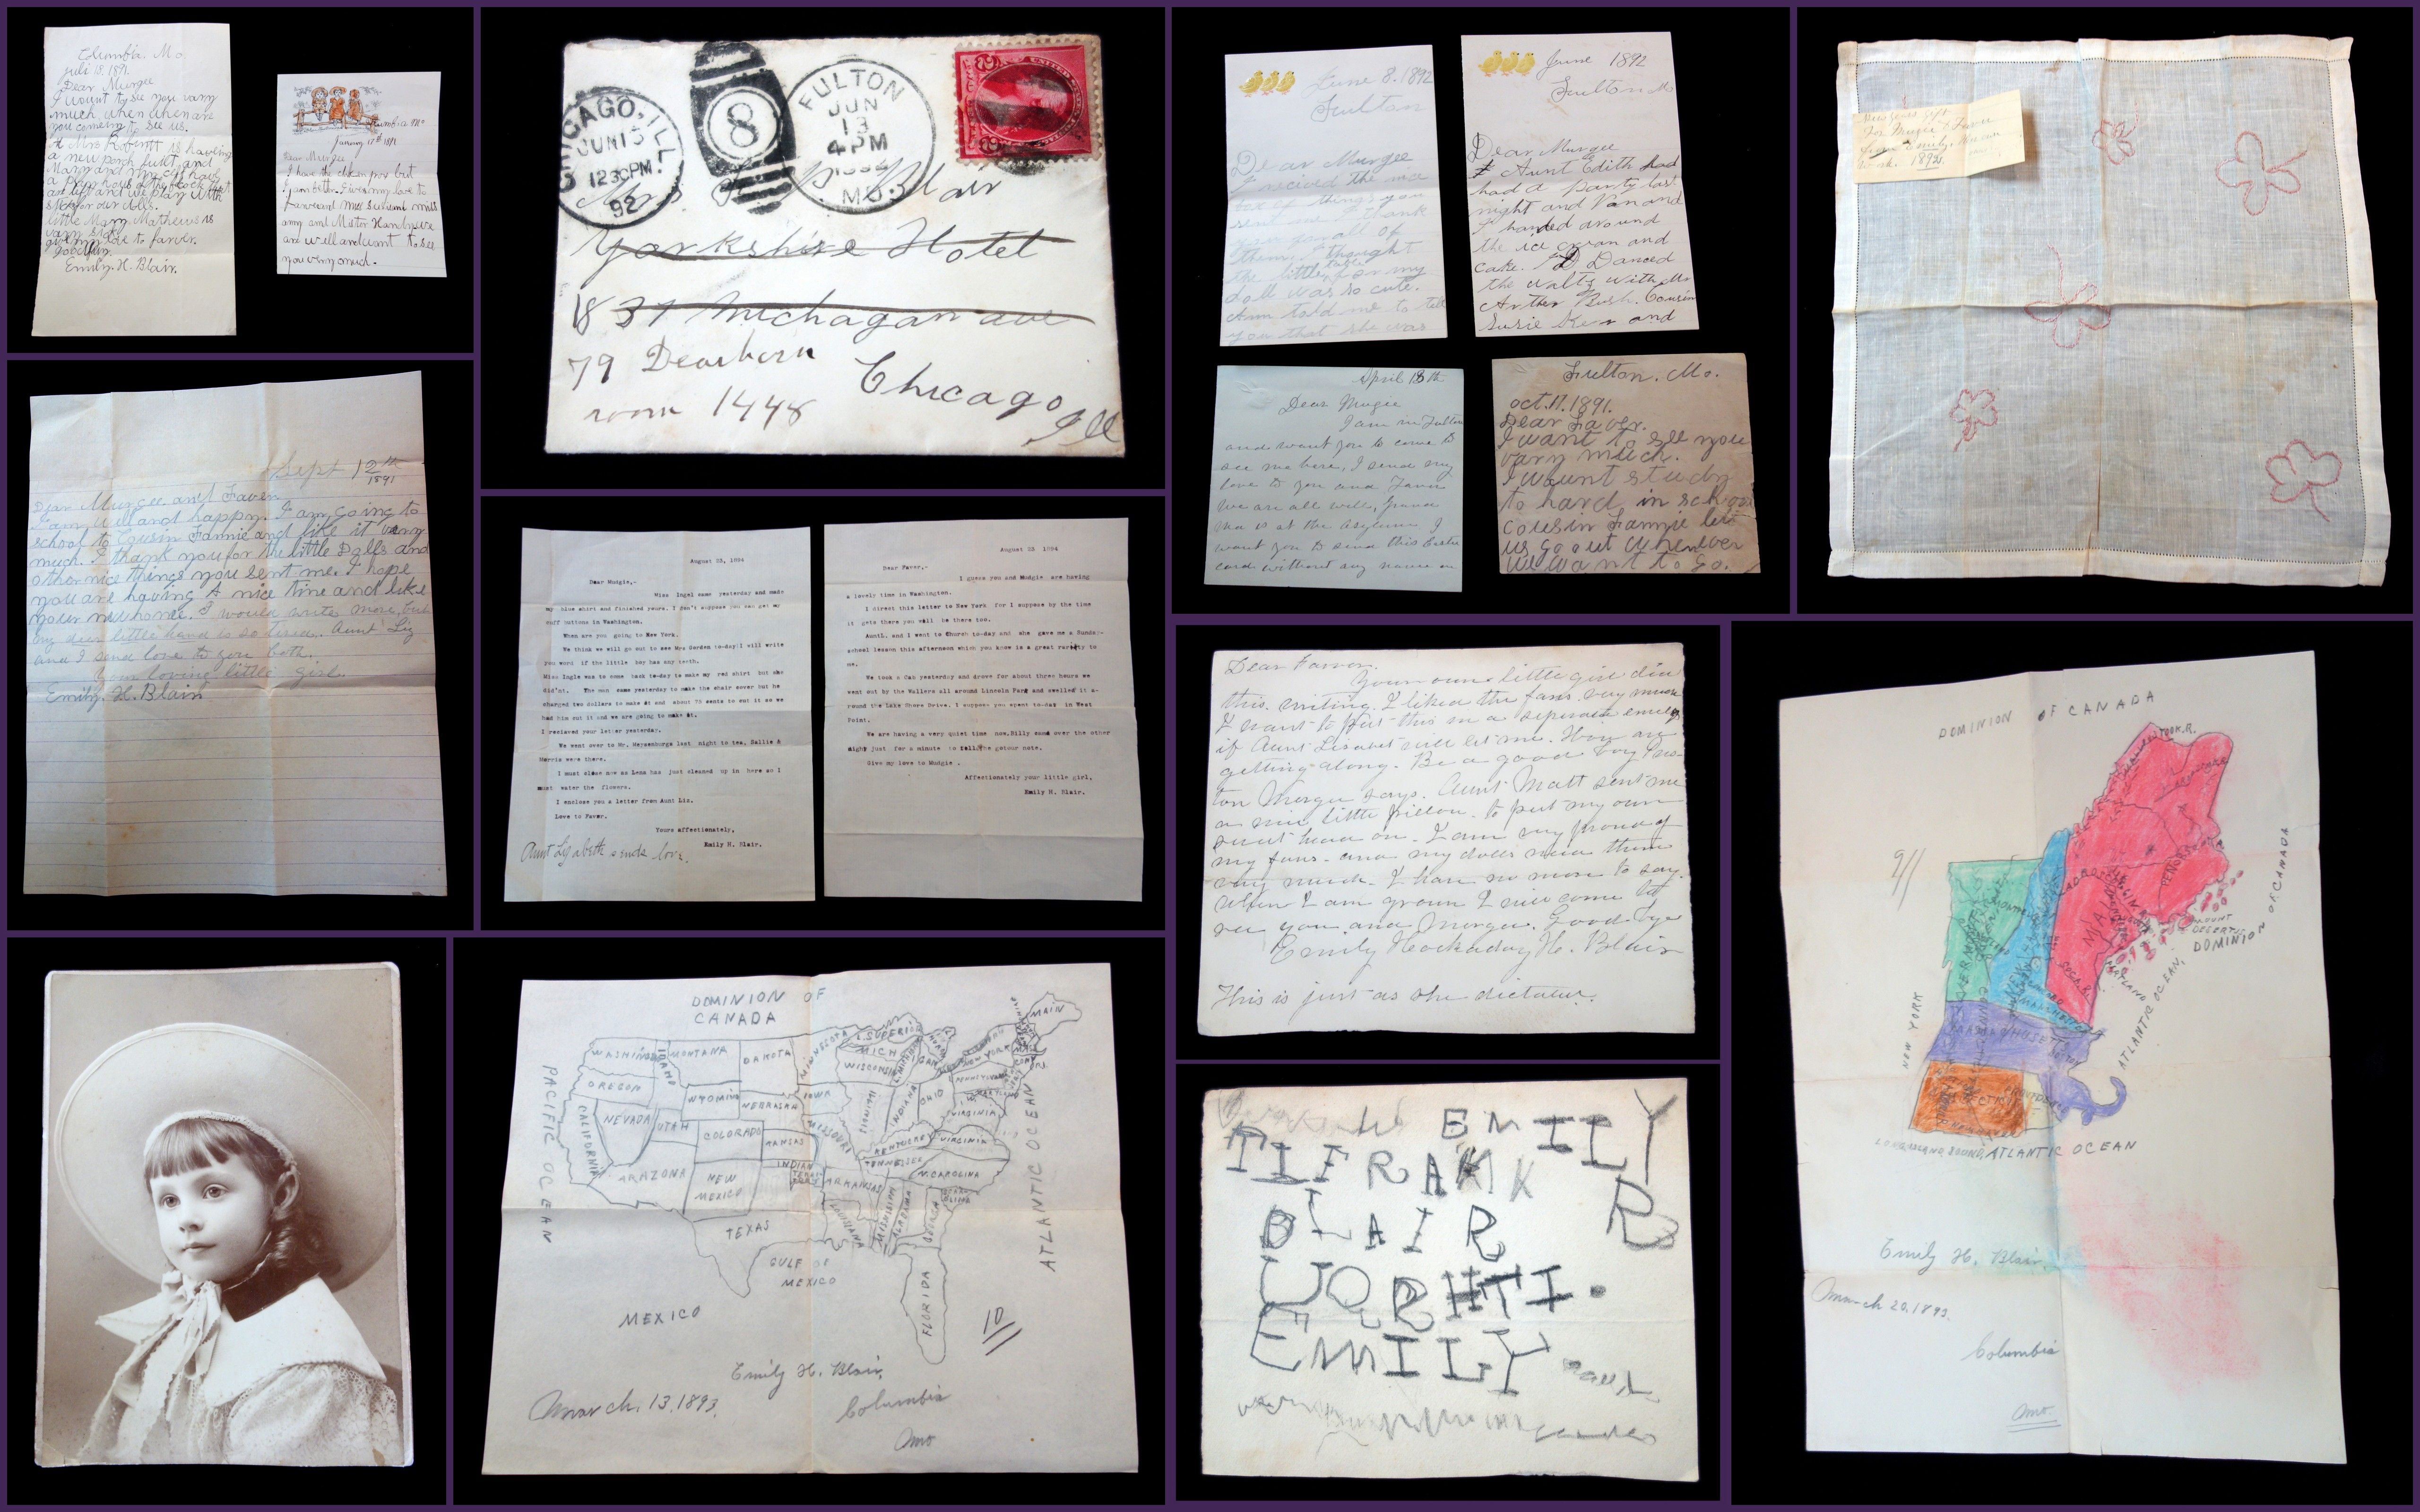 Columbia, Mo.
juli 18, 1891.
Dear Murgee
I wount to see you vary
much, when when are
you comeing to see us.
a new porch built and
little Mary Mathews is
vary sick.
give my love to farver.
goodby.
Emily. H. Blair.
January 17th 1891
Dear Murgee
I have the chicken pox but
I am better. Give my love to
and well and want to see
you very much.
CHICAGO, ILL.
JUN 15
12 30 PM.
92
8
FULTON
JUN
13
4 PM
1892
MO.
Mrs Blair
Yorkshire Hotel
1837 Michagan ave
79 Dearborn
room 1448
Chicago
Ill
June 8. 1892
Fulton
Dear Murgee
I recived the
things you
sent me I thank
you for all of
them, I thought
the little table for my
doll was so cute.
Ann told me to tell
you that she was
June 1892
Fulton Mo
Dear Murgee
Aunt Edith had
had a party last
night and Van and
I handed around
the ice cream and
cake. I Danced
the waltz with Mr
Arther Bush. Cousin
Susie Kerr and
April 18th
Dear Mugie
I am in Fulton
and want you to come to
see me here, I send my
love to you and Favor
We are all well, Grand
ma is at the Asylum I
want you to send this Easter
card without any name on
Fulton. Mo.
oct. 11. 1891.
Dear Faver.
I want to see you
vary much.
I wount study
to hard in school
cousin Fannie lets
us go out whenever
we want to go.
New years gift
For Mugie & Faver
from Emily, her own
work. 1892.
Sept 12th
1891
Dear Murgee and Faver
I am well and happy. I am going to
school to Cousin Fannie and like it vary
much. I thank you for the little Dolls and
other nice things you sent me. I hope
you are having A nice time and like
your new home. I would write more, but
my dear little hand is so tired. Aunt Liz
and I send love to you both.
Your loving little girl.
Emily. H. Blair
August 23, 1894
Dear Mudgie,-
Miss Ingel came yesterday and made
my blue shirt and finished yours. I don't suppose you can get my
cuff buttons in Washington.
When are you going to New York.
We think we will go out to see Mrs Gorden to-day! I will write
you word if the little boy has any teeth.
Miss Ingle was to come back to-day to make my red shirt but she
did'nt. The man came yesterday to make the chair cover but he
charged two dollars to make it and about 75 cents to cut it so we
had him cut it and we are going to make it.
I recieved your letter yesterday.
We went over to Mr. Meysenburgs last night to tea, Hallie &
Morris were there.
I must close now as Lena has just cleaned up in here so I
must water the flowers.
I enclose you a letter from Aunt Liz.
Love to Faver.
Yours affectionately,
Emily H. Blair.
Aunt Lizabeth sends love.
August 23 1894
Dear Faver,-
I guess you and Mudgie are having
a lovely time in Washington.
I direct this letter to New York for I suppose by the time
it gets there you will be there too.
AuntL. and I went to Church to-day and she gave me a Sunday-
school lesson this afternoon which you know is a great rarity to
me.
We took a Cab yesterday and drove for about three hours we
went out by the Wallers all around Lincoln Park and swelled it a-
round the Lake Shore Drive. I suppose you spent to-day in West
Point.
We are having a very quiet time now, Billy came over the other
night just for a minute
Give my love to Mudgie .
Affectionately your little girl,
Emily H. Blair.
Dear Faver.
Your own little girl din
this writing. I liked the fans very much
I want to put this in a seperate envelop
if Aunt Lisabet will let me. How are
getting along. Be a good boy
Murgee says. Aunt Matt sent me
a nice little pillow to put my own
sweet head on. I am very proud of
my fans and my dolls need them
very much. I have no more to say.
When I am grown I will come to
see you and Murgee. Good bye
Emily Hockaday H. Blair
This is just as she dictates.
DOMINION OF CANADA
9//
NEW YORK
VERMONT
MAINE
MASSACHUSETTS
PORTLAND
MOUNT
DESERT
DOMINION OF CANADA
ATLANTIC OCEAN,
LONG ISLAND SOUND, ATLANTIC OCEAN
Emily H. Blair.
March 20, 1893.
Columbia
Mo
DOMINION OF
CANADA
WASHING
IDAHO
MONTANA
DAKOTA
MINNESOTA
L. SUPERIOR
MICH
GAN
MAIN
OREGON
WYOMING
WISCONSIN
NEW YORK
NEBRASKA
IOWA
CALIFORNIA
NEVADA
UTAH
COLORADO
KANSAS
MISSOURI
ILLINOIS
INDIANA
OHIO
W.
VIRGINIA
KENTUCKEY
VIRGINIA
TENNESSEE
N. CAROLINA
ARAZONA
NEW
MEXICO
INDIAN
ARKANSAS
TEXAS
LOUISIANA
MISSISSIPPI
ALABAMA
GEORGIA
FLORIDA
GULF OF
MEXICO
MEXICO
PACIFIC OCEAN
ATLANTIC OCEAN
10
Emily H. Blair,
March, 13, 1893.
Columbia
Mo
EMILY
TIFRANK
BLAIR
R
WORHTI.
EMILY